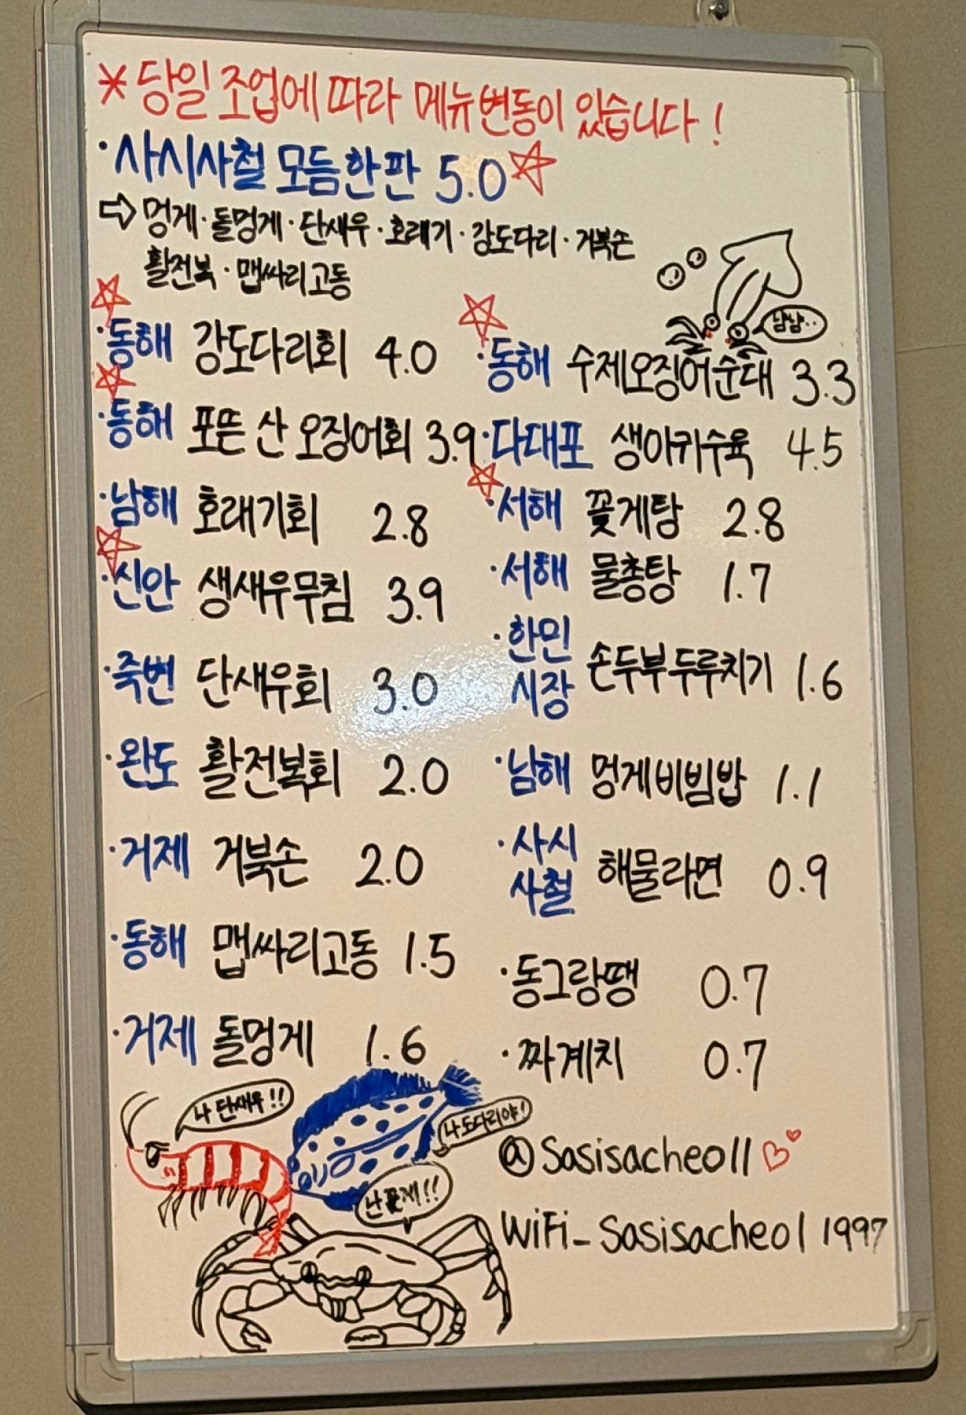 * 당일 조업에 따라 메뉴변동이 있습니다!
· 사시사철 모듬한판 5.0
⇨ 멍게 · 돌멍게 · 단새우 · 호래기 · 강도다리 · 거북손
활전복 · 맵싸리고동
· 동해 강도다리회 4.0
· 동해 포뜬 산 오징어회 3.9
· 남해 호래기회 2.8
· 신안 생새우무침 3.9
· 죽변 단새우회 3.0
· 완도 활전복회 2.0
· 거제 거북손 2.0
· 동해 맵싸리고동 1.5
· 거제 돌멍게 1.6
냠냠..
· 동해 수제오징어순대 3.3
· 다대포 생아귀수육 4.5
· 서해 꽃게탕 2.8
· 서해 물총탕 1.7
· 한민
시장 손두부두루치기 1.6
· 남해 멍게비빔밥 1.1
· 사시
사철 해물라면 0.9
· 동그랑땡 0.7
· 짜계치 0.7
나 단새우!!
나 도다리야!
난 꽃게!!
@Sasisacheol1
WiFi_Sasisacheol 1997